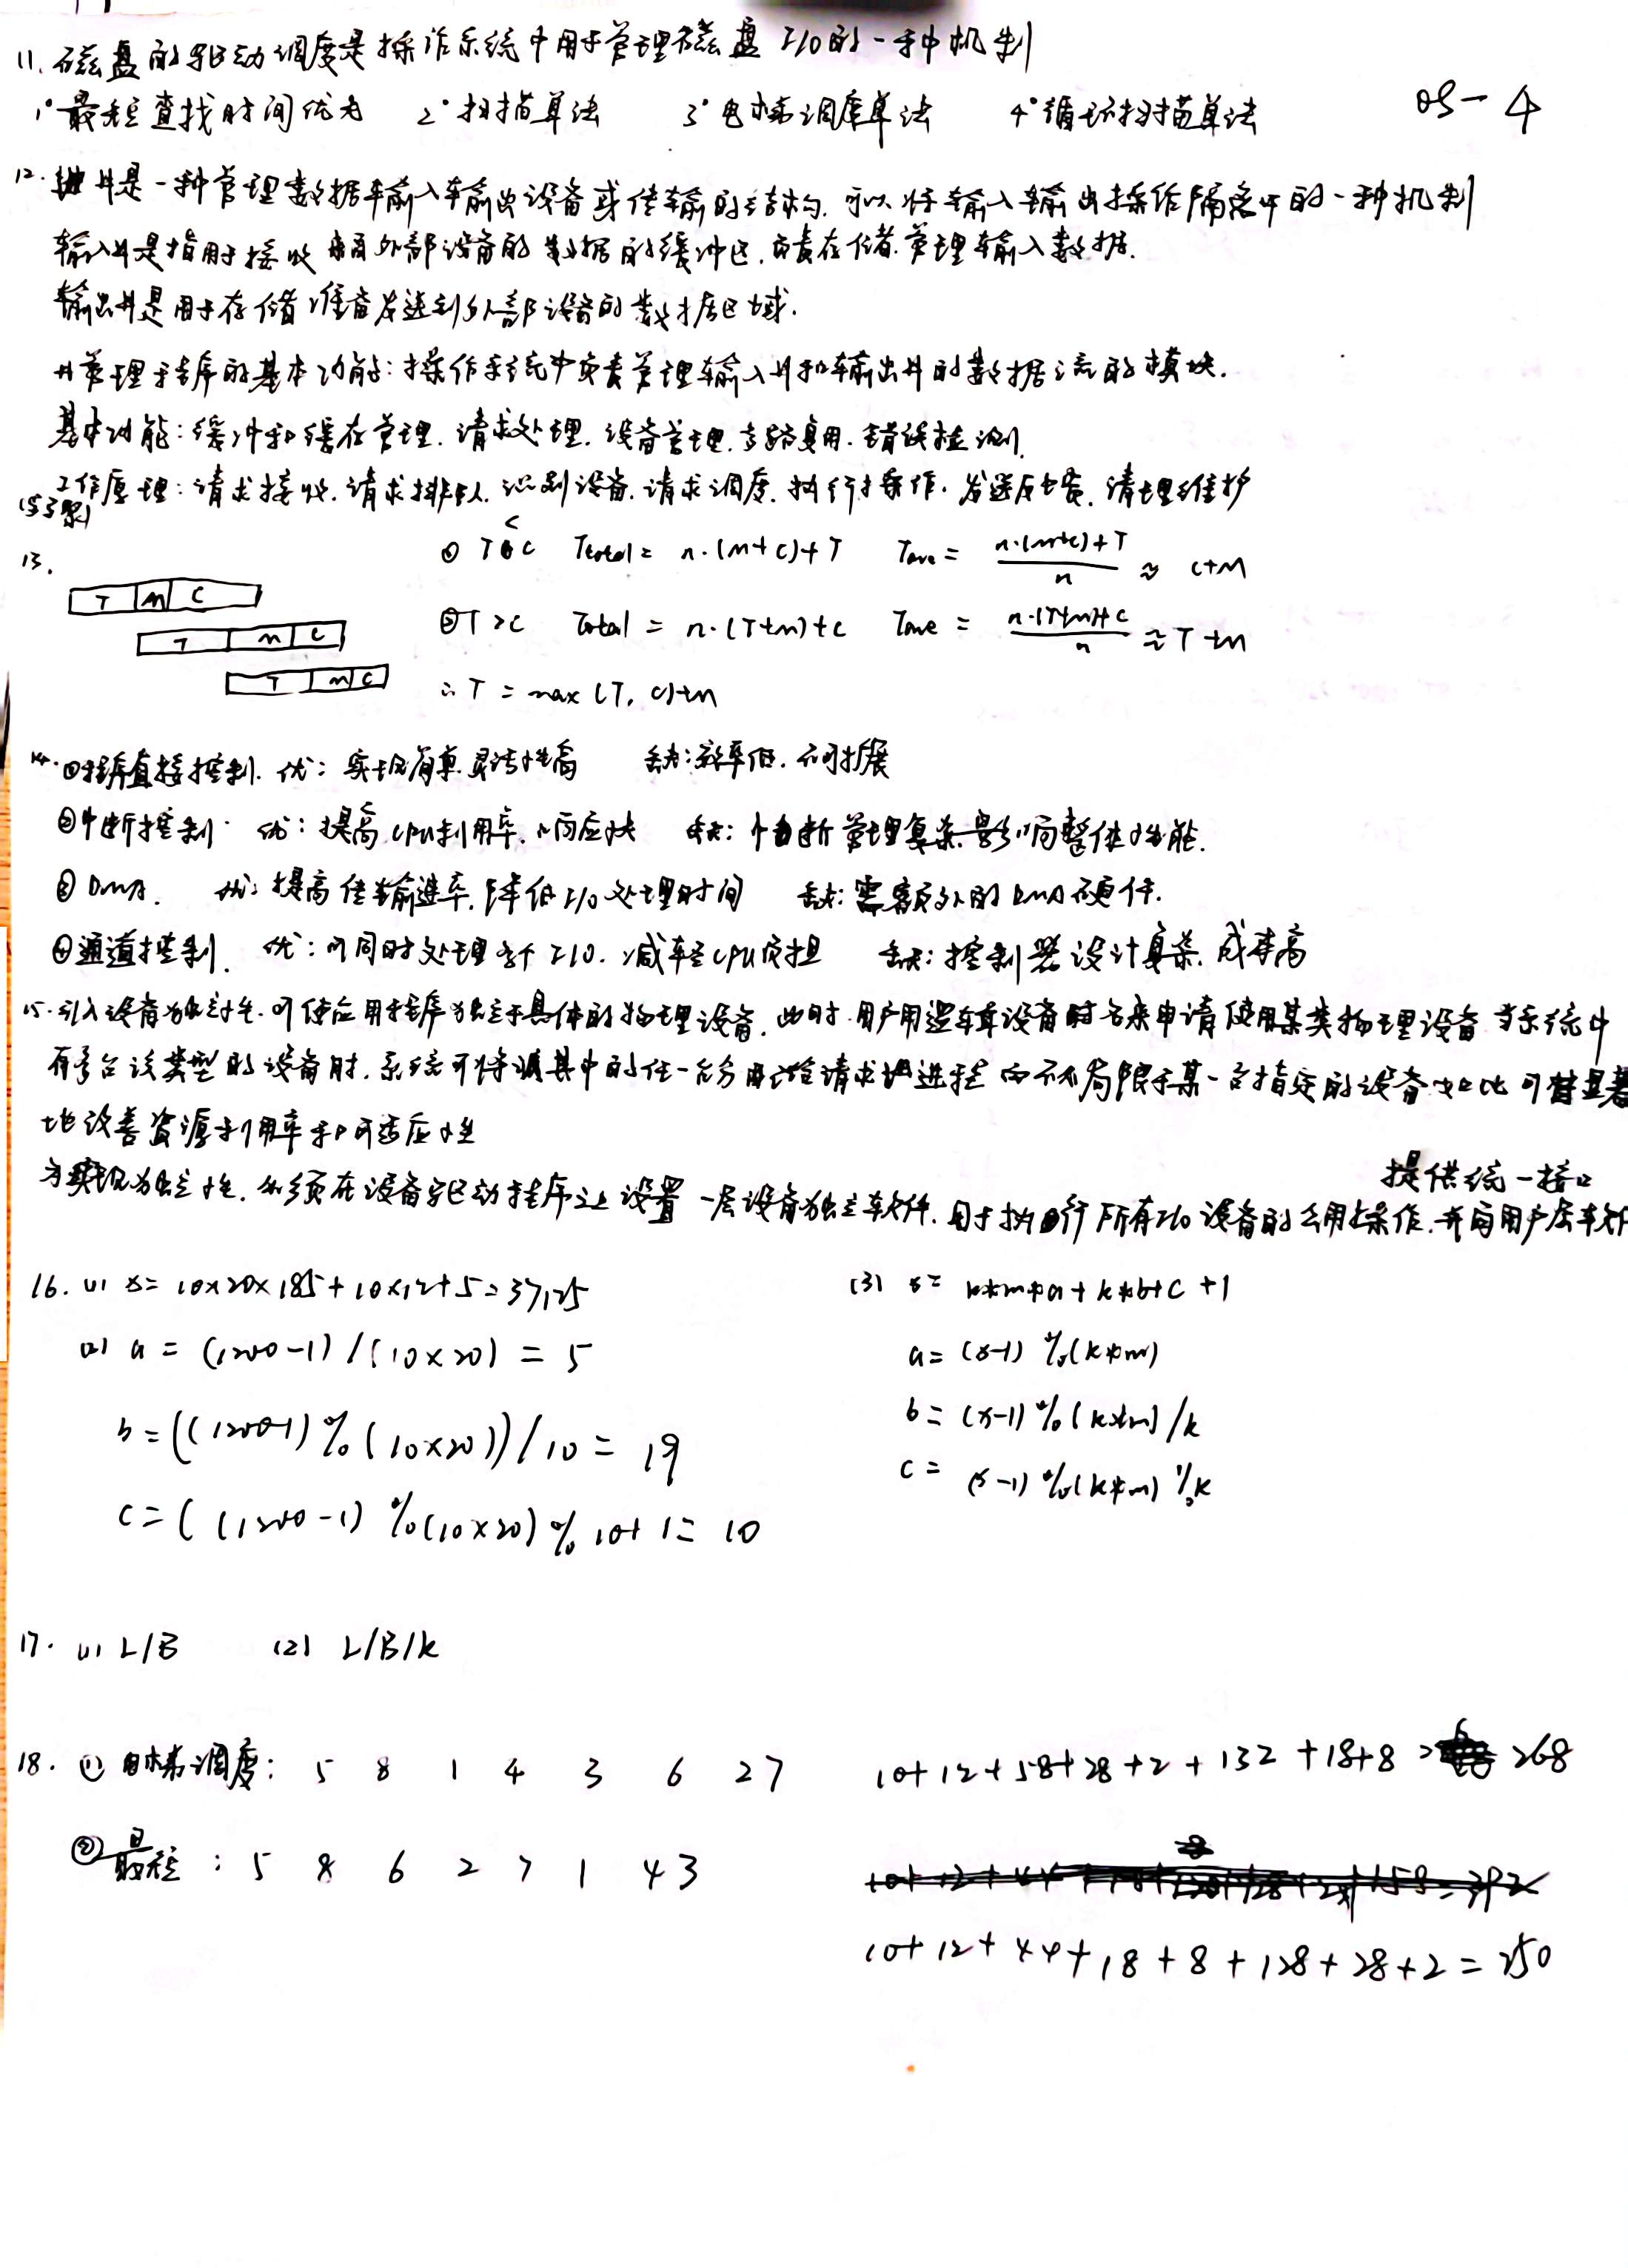 11. 磁盘的驱动调度是操作系统中用于管理磁盘I/O的一种机制
1° 最短查找时间优先 2° 扫描算法 3° 电梯调度算法 4° 循环扫描算法
OS-4
12. 井是一种管理数据输入输出设备或传输的结构, 可以将输入输出操作隔离开的一种机制
输入井是指用于接收来自外部设备的数据的缓冲区, 负责存储.管理输入数据.
输出井是用于存储准备发送到外部设备的数据区域.
井管理程序的基本功能: 操作系统中负责管理输入井和输出井的数据流的模块.
基本功能: 缓冲和缓存管理. 请求处理. 设备管理. 多路复用. 错误检测.
工作原理: 请求接收. 请求排队. 识别设备. 请求调度. 执行操作. 发送反馈. 清理维护
13.
① T < C Ttotal = n·(M+C)+T Tave = n·(M+C)+T / n ≈ C+M
T M C
② T > C Total = n·(T+M)+C Tave = n·(T+M)+C / n ≈ T+M
T M C
T M C
∴ T = max (T, C)+M
14. ①程序直接控制. 优: 实现简单 灵活性高 缺: 效率低. 不可扩展
②中断控制. 优: 提高CPU利用率. 响应快 缺: 中断管理复杂 影响整体性能.
③ DMA. 优: 提高传输速率, 降低I/O处理时间 缺: 需额外的DMA硬件.
④通道控制. 优: 可同时处理多个I/O. 减轻CPU负担 缺: 控制器设计复杂. 成本高
15. 引入设备独立性. 可使应用程序独立于具体的物理设备. 此时. 用户用逻辑设备名来申请使用某类物理设备 当系统中
有多台该类型的设备时. 系统可将其中的任一台分配给请求进程 而不局限于某一台指定的设备 如此可显著
地改善资源利用率和可适应性
提供统一接口
为实现独立性. 必须在设备驱动程序之上设置一层设备独立软件. 用于执行所有I/O设备的公用操作. 并向用户层软件
16. (1) x = 10×20×185+10×12+5=37125
(2) a = (1200-1)/(10×20) = 5
b = ((1200-1)%(10×20))/10 = 19
c = ((1200-1)%(10×20)%10+1= 10
(3) x = k*m*a+k*b+c+1
a = (x-1) %(k*m)
b = (x-1)%(k*m)/k
c = (x-1)%(k*m)%k
17. (1) L/B (2) L/B/k
18. ① 电梯调度: 5 8 1 4 3 6 2 7 10+12+58+28+2+132+18+8=268
② 最短: 5 8 6 2 7 1 4 3
10+12+44+18+8+128+28+2=250